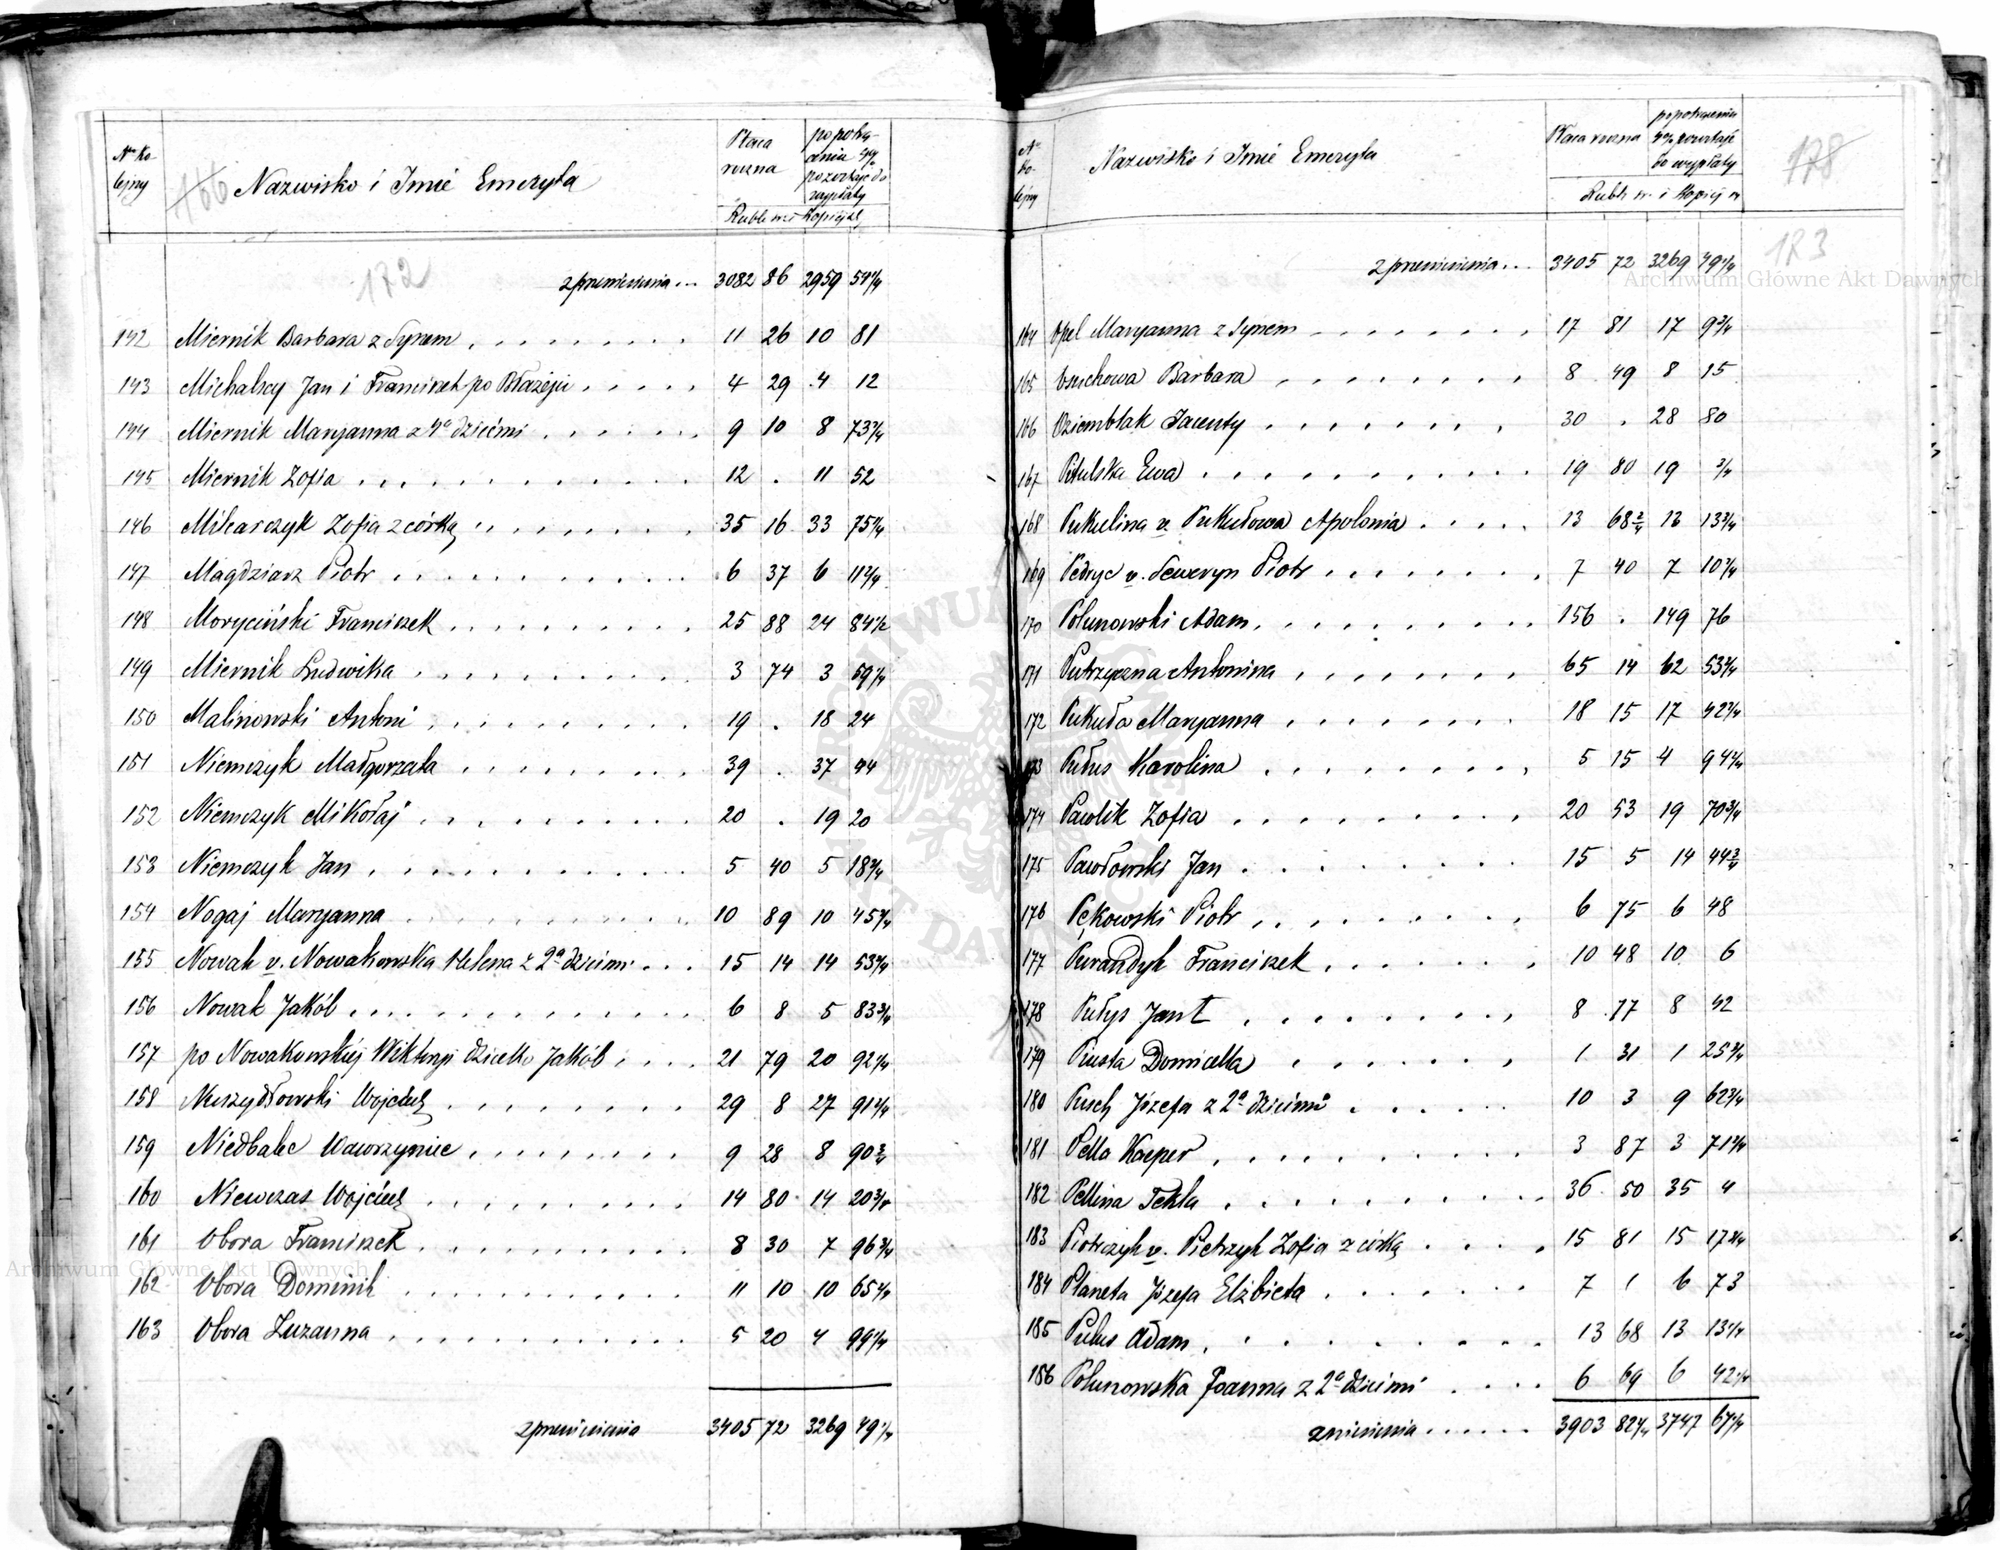 No Ko-
lejny
166 Nazwisko i Imie Emeryta
Płaca
roczna
po potrą-
ceniu 4%
pozostaje do
wypłaty
Rubli sr. i Kopiejek
172
z przeniesienia ... 3082 86 2959 54 1/4
142 Miernik Barbara z Synem . . . 11 26 10 81
143 Michalscy Jan i Franciszek po Błażeju . . . 4 29 4 12
144 Miernik Maryanna z 4a dziećmi . . . 9 10 8 73 3/4
145 Miernik Zofia . . . 12 . 11 52
146 Milcarczyk Zofia z córką . . . 35 16 33 75 1/4
147 Magdziarz Piotr . . . 6 37 6 11 2/4
148 Moryciński Franciszek . . . 25 88 24 84 1/2
149 Miernik Ludwika . . . 3 74 3 59 1/4
150 Malinowski Antoni . . . 19 . 18 24
151 Niemczyk Małgorzata . . . 39 . 37 44
152 Niemczyk Mikołaj . . . 20 . 19 20
153 Niemczyk Jan . . . 5 40 5 18 2/4
154 Nogaj Maryanna . . . 10 89 10 45 2/4
155 Nowak v. Nowakowska Helena z 2a dziećmi . . . 15 14 14 53 2/4
156 Nowak Jakób . . . 6 8 5 83 3/4
157 po Nowakowskiéj Wiktoryi dziecko Jakób . . . 21 79 20 92 1/4
158 Wojciech . . . 29 8 27 91 3/4
159 Niedbalec Wawrzyniec . . . 9 28 8 90 3/4
160 Niewczas Wojciech . . . 14 80 14 20 3/4
161 Obora Franciszek . . . 8 30 7 96 3/4
162 Obora Dominik . . . 11 10 10 65 2/4
163 Obora Zuzanna . . . 5 20 4 99 1/4
z przeniesienia 3405 72 3269 49 1/4
No
Ko-
lejny
Nazwisko i Imie Emeryta
Płaca roczna
po potrąceniu
4% pozostaje
do wypłaty
Rubli sr. i Kopiej
178
173
z przeniesienia ... 3405 72 3269 49 1/4
164 Opel Maryanna z Synem . . . 17 81 17 9 3/4
165 Barbara . . . 8 49 8 15
166 Oziembłak Jacenty . . . 30 . 28 80
167 Pitulska Ewa . . . 19 80 19 3/4
168 Pukulina v. Pukułowa Apolonia . . . 13 68 2/4 13 13 3/4
169 Pedryc v. Seweryn Piotr . . . 7 40 7 10 2/4
170 Polunowski Adam . . . 156 . 149 76
171 Antonina . . . 65 14 62 53 2/4
172 Pukuła Maryanna . . . 18 15 17 42 2/4
173 Pułus Karolina . . . 5 15 4 94 2/4
174 Pawlik Zofia . . . 20 53 19 70 3/4
175 Pawłowski Jan . . . 15 5 14 44 3/4
176 Pękowski Piotr . . . 6 75 6 48
177 Purandyk Franciszek . . . 10 48 10 6
178 Pułys Jan . . . 8 77 8 42
179 Piusta Domicella . . . 1 31 1 25 3/4
180 Pusch Józefa z 2a dziećmi . . . 10 3 9 62 3/4
181 Pella Kacper . . . 3 87 3 71 2/4
182 Pellina Tekla . . . 36 50 35 4
183 Piotrczyk v. Pietrzyk Zofia z córką . . . 15 81 15 17 3/4
184 Planeta Józefa Elżbieta . . . 7 1 6 73
185 Pulus Adam . . . 13 68 13 13 1/4
186 Polunowska Joanna z 2a dziećmi . . . 6 69 6 42 1/4
z niesienia . . . 3903 82 2/4 3747 67 1/4
Archiwum Główne Akt Dawnych
Archiwum Główne Akt Dawnych
ARCHIWUM GŁÓWNE AKT DAWNYCH